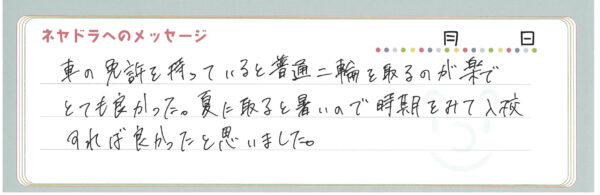 ネヤドラへのメッセージ
月 日
車の免許を持っていると普通二輪を取るのが楽で
とても良かった。夏に取ると暑いので時期をみて入校
すれば良かったと思いました。